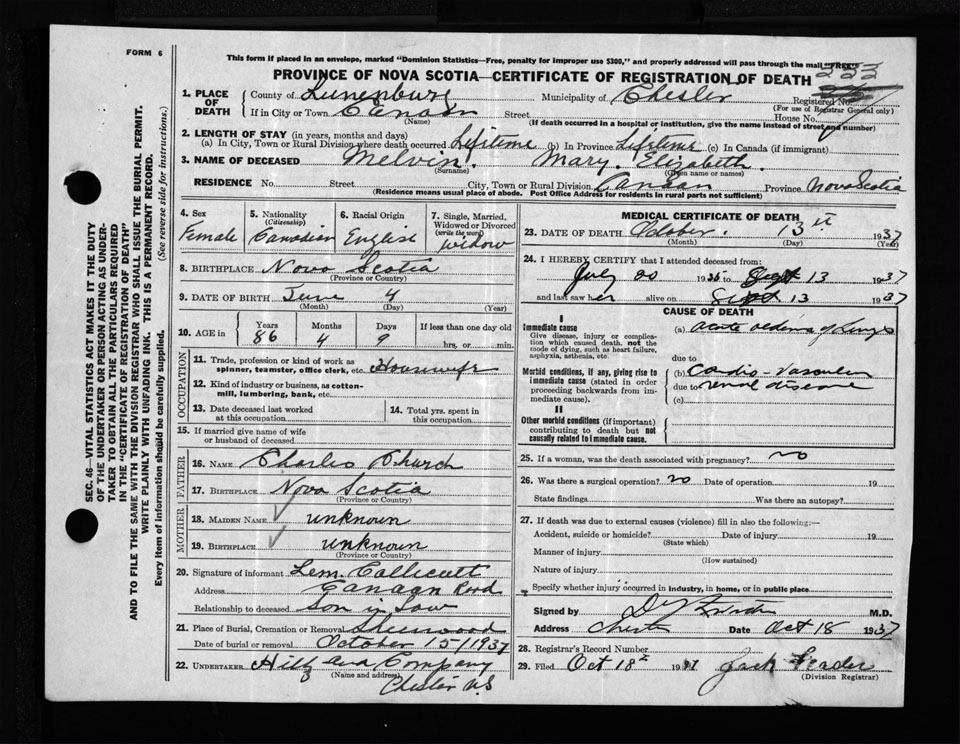 FORM 6
This form if placed in an envelope, marked "Dominion Statistics—Free, penalty for improper use $300," and properly addressed will pass through the mail "FREE"
PROVINCE OF NOVA SCOTIA—CERTIFICATE OF REGISTRATION OF DEATH
253
1. PLACE OF DEATH County of Lunenburg Municipality of Chester Registered No.
(For use of Registrar General only)
If in City or Town Canaan Street House No.
(Name) (If death occurred in a hospital or institution, give the name instead of street and number)
2. LENGTH OF STAY (in years, months and days)
(a) In City, Town or Rural Division where death occurred Lifetime (b) In Province Lifetime (c) In Canada (if immigrant)
3. NAME OF DECEASED Melvin. Mary. Elizabeth.
(Surname) (Given name or names)
RESIDENCE No. Street City, Town or Rural Division Canaan Province Nova Scotia
(Residence means usual place of abode. Post Office Address for residents in rural parts not sufficient)
4. Sex Female
5. Nationality (Citizenship) Canadian
6. Racial Origin English
7. Single, Married, Widowed or Divorced (write the word) widow
8. BIRTHPLACE Nova Scotia
(Province or Country)
9. DATE OF BIRTH June 4
(Month) (Day) (Year)
10. AGE in Years Months Days If less than one day old
86 4 9 hrs. or min.
OCCUPATION
11. Trade, profession or kind of work as spinner, teamster, office clerk, etc. Housewife
12. Kind of industry or business, as cotton-mill, lumbering, bank, etc.
13. Date deceased last worked at this occupation
14. Total yrs. spent in this occupation
15. If married give name of wife or husband of deceased
FATHER
16. NAME Charles Church
17. BIRTHPLACE Nova Scotia
(Province or Country)
MOTHER
18. MAIDEN NAME unknown
19. BIRTHPLACE unknown
(Province or Country)
20. Signature of informant Lem. Collicutt
Address Canaan Road
Relationship to deceased Son in Law
21. Place of Burial, Cremation or Removal Sherwood
Date of burial or removal October 15/1937
22. UNDERTAKER Hiltz and Company
(Name and address)
Chester N.S
MEDICAL CERTIFICATE OF DEATH
23. DATE OF DEATH October. 13th 1937
(Month) (Day) (Year)
24. I HEREBY CERTIFY that I attended deceased from:
July 20 1935 to Sept 13 1937
and last saw her alive on Sept 13 1937
CAUSE OF DEATH
I
Immediate cause
Give disease, injury or complication which caused death, not the mode of dying, such as heart failure, asphyxia, asthenia, etc.
(a) acute oedema of Lungs
due to
Morbid conditions, if any, giving rise to immediate cause (stated in order proceeding backwards from immediate cause).
(b) Cardio-vascular
due to renal disease
(c)
II
Other morbid conditions (if important) contributing to death but not causally related to immediate cause.
25. If a woman, was the death associated with pregnancy? no
26. Was there a surgical operation? no Date of operation 19
State findings Was there an autopsy?
27. If death was due to external causes (violence) fill in also the following:—
Accident, suicide or homicide? Date of injury 19
(State which)
Manner of injury
(How sustained)
Nature of injury
Specify whether injury occurred in industry, in home, or in public place
Signed by M.D.
Address Chester Date Oct 18 1937
28. Registrar's Record Number
29. Filed Oct 18th 1937 Jack Reader
(Division Registrar)
SEC. 46—VITAL STATISTICS ACT MAKES IT THE DUTY
OF THE UNDERTAKER OR PERSON ACTING AS UNDER-
TAKER TO OBTAIN ALL THE PARTICULARS REQUIRED
IN THE "CERTIFICATE OF REGISTRATION OF DEATH"
AND TO FILE THE SAME WITH THE DIVISION REGISTRAR WHO SHALL ISSUE THE BURIAL PERMIT.
WRITE PLAINLY WITH UNFADING INK. THIS IS A PERMANENT RECORD.
Every item of information should be carefully supplied. (See reverse side for instructions.)